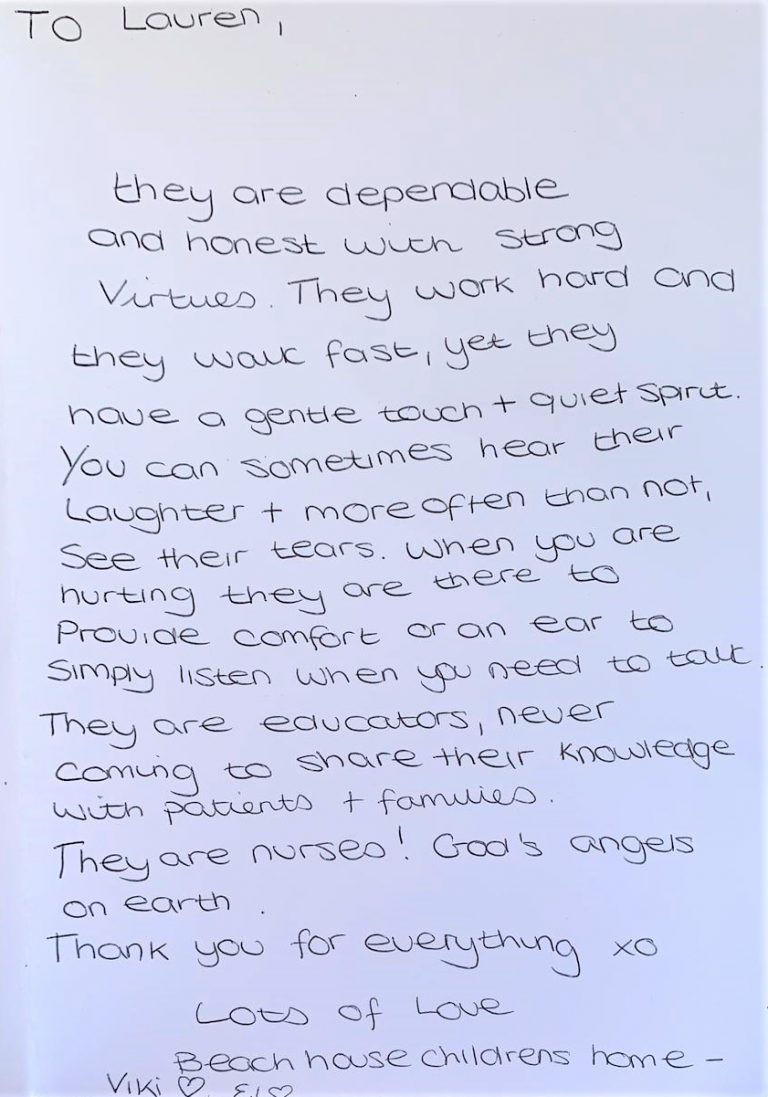 To Lauren,
they are dependable
and honest with strong
Virtues. They work hard and
they walk fast, yet they
have a gentle touch + quiet spirit.
You can sometimes hear their
Laughter + more often than not,
See their tears. When you are
hurting they are there to
Provide comfort or an ear to
Simply listen when you need to talk.
They are educators, never
coming to share their knowledge
with patients + families.
They are nurses! God's angels
on earth.
Thank you for everything xo
Lots of Love
Beach house childrens home -
Viki ♡